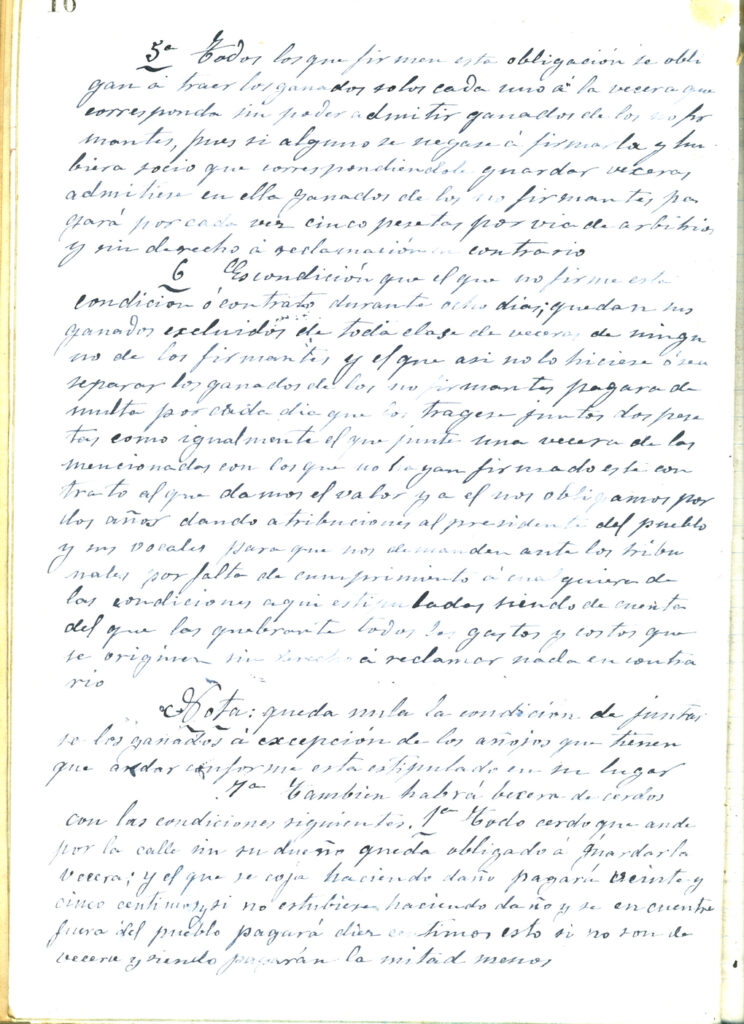 10
5ª Todos los que firmen esta obligación se obli
gan á traer los ganados solos cada uno á la vecera que
corresponda sin poder admitir ganados de los no fir
mantes, pues si alguno se negase á firmarla y hu-
biera socio que correspondiendole guardar veceras
admitiese en ella ganados de los no firmantes pa
gará por cada vez cinco pesetas por via de arbitrios
y sin derecho á reclamación en contrario
6 Es condición que el que no firme esta
condición ó contrato durante ocho dias; quedan sus
ganados excluidos de toda clase de veceras de ningu
no de los firmantes y el que asi no lo hiciese ó sea
separar los ganados de los no firmantes pagara de
multa por cada dia que los tragese juntos dos pese
tas como igualmente el que junte una vecera de las
mencionadas con los que no hayan firmado este con
trato al que damos el valor y a el nos obligamos por
dos años dando atribuciones al presidente del pueblo
y sus vocales para que nos demanden ante los tribu
nales por falta de cumprimiento á cualquiera de
las condiciones aqui estipuladas siendo de cuenta
del que las quebrante todos los gastos y costos que
se originen sin derecho á reclamar nada en contra
rio
Nota: queda nula la condición de juntar
se los ganados á excepción de los añojos que tienen
que andar conforme esta estipulado en su lugar
7ª Tambien habrá becera de cerdos
con las condiciones siguientes. 1ª Todo cerdo que ande
por la calle sin su dueño queda obligado á guardar la
vecera; y el que se coja haciendo daño pagará veinte y
cinco centimos y si no estubiese haciendo daño y se encuentre
fuera del pueblo pagará diez centimos esto si no son de
vecera y siendo pagarán la mitad menos